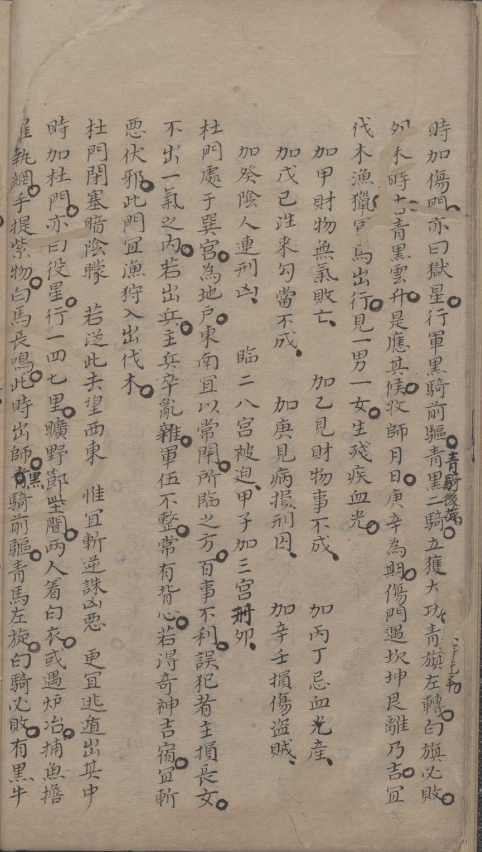 時加傷門亦曰獄星行軍黑騎前驅青黑二騎五獲大功青旗左轉白旗必敗
青騎後蕩
列木時古青黑雲升是應其候牧師月日庚辛為期傷門遇坎坤艮離乃吉宜
伐木漁獵軍馬出行見一男一女生殘疾血光
加甲財物無氣敗亡 加乙見財物事不成 加丙丁忌血光產
加戊己往來勾當不成 加庚見病損刑囚 加辛壬損傷盜賊
加癸陰人連刑凶 臨二八宮被迫甲子加三宮刑卯
杜門處于巽宮為地戶東南宜以常閉所臨之方百事不利誤犯者主損長女
不出一氣之內若出兵主兵卒亂雜軍伍不整常有背心若淂奇神吉宿宜斬
惡伏邪此門宜漁狩入出伐木
杜門閉塞暗陰朦 若泛此去望西東 惟宜斬逆誅凶惡 更宜逃遁出其中
時加杜門亦曰役星行一四七里曠野郊墅間兩人着白衣或遇炉冶捕魚擔
執網手提紫物白馬長鳴此時出師黑騎前驅青馬左旋白騎必敗有黑牛